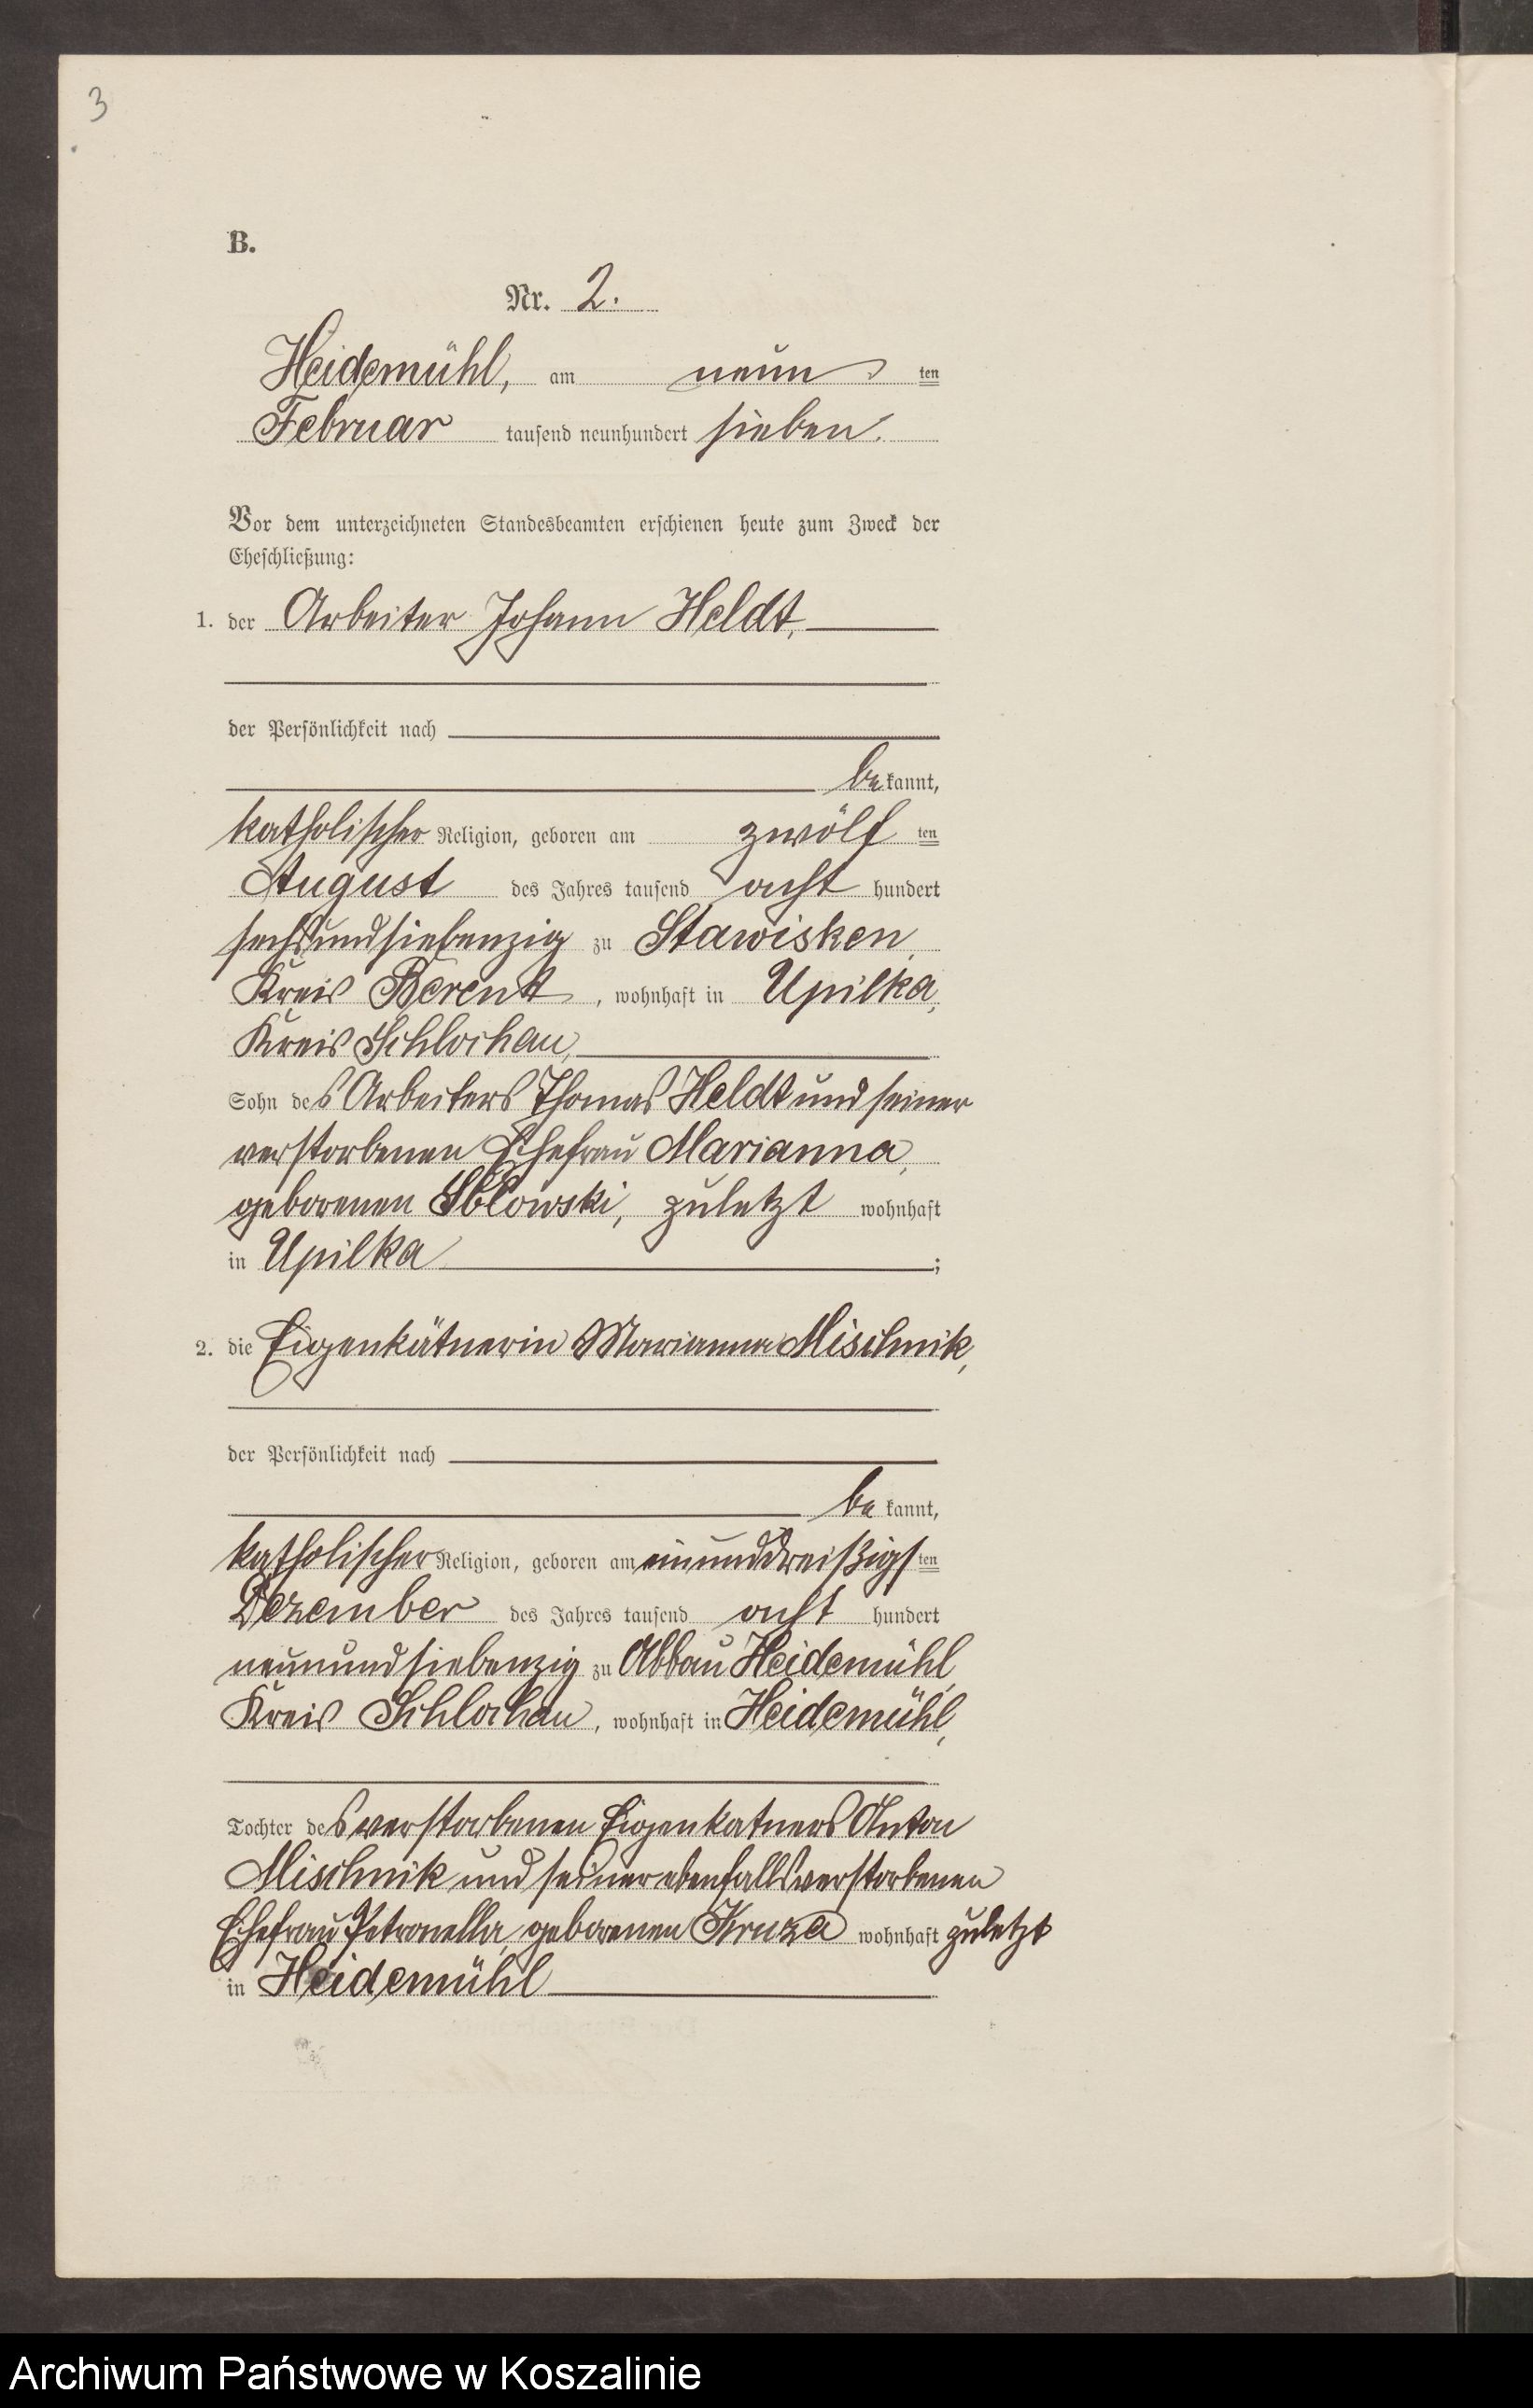 3
B.
Nr. 2.
Heidemühl, am neun ten
Februar tausend neunhundert sieben.
Vor dem unterzeichneten Standesbeamten erschienen heute zum Zweck der
Eheschließung:
1. der Arbeiter Johann Heldt,
der Persönlichkeit nach
be kannt,
katholischer Religion, geboren am zwölf ten
August des Jahres tausend acht hundert
sechsundsiebenzig zu Stawisken,
Kreis Berent, wohnhaft in Upilka,
Kreis Schlochau,
Sohn des Arbeiters Thomas Heldt und seiner
verstorbenen Ehefrau Marianna,
geborenen zuletzt wohnhaft
in Upilka ;
2. die Eigenkätnerin Marianna Mischnik,
der Persönlichkeit nach
be kannt,
katholischer Religion, geboren am einunddreißigsten
Dezember des Jahres tausend acht hundert
neunundsiebenzig zu Abbau Heidemühl,
Kreis Schlochau, wohnhaft in Heidemühl,
Tochter des verstorbenen Eigenkatners Anton
Mischnik und seiner ebenfalls verstorbenen
Ehefrau Petronella, geborenen Kruza wohnhaft zuletzt
in Heidemühl
Archiwum Państwowe w Koszalinie